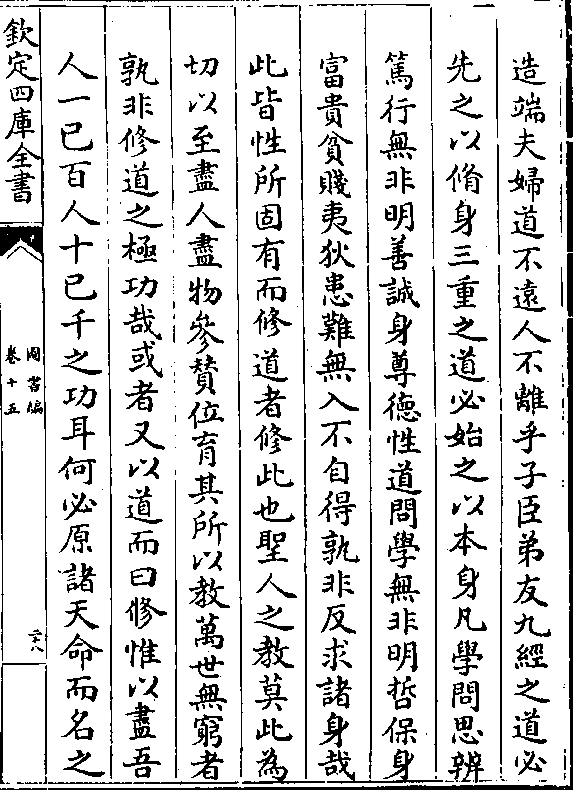 造端夫婦道不遠人不離乎子臣弟友九經之道必
先之以脩身三重之道必始之以本身凡學問思辨
篤行無非明善誠身尊德性道問學無非明哲保身
富貴貧賤夷狄患難無入不自得孰非反求諸身哉
此皆性所固有而修道者修此也聖人之教莫此為
切以至盡人盡物參賛位育其所以教萬世無窮者
孰非修道之極功哉或者又以道而曰修惟以盡吾
人一已百人十已千之功耳何必原諸天命而名之
欽定四庫全書
圖書編
卷十五
二十八